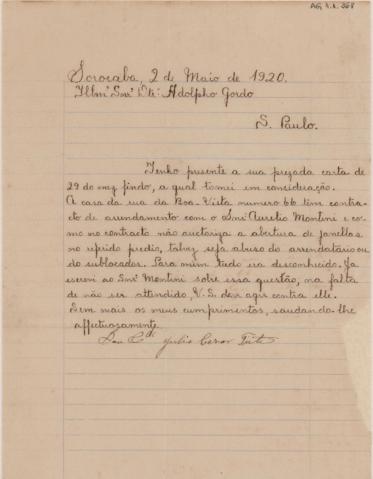 AG 4.2.368
Sorocaba, 2 de Maio de 1920.
Illmº Snrº Dr: Adolpho Gordo
S. Paulo.
Tenho presente a sua prezada carta de
29 do mez findo, a qual tomei em consideração.
A casa da rua da Boa-Vista numero 66 tem contra-
cto de arrendamento com o Snr: Aurelio Montini e co-
mo no contracto não auctoriza a abertura de janellas
no referido predio, talvez seja abuso do arrendatario ou
do sublocador. Para mim tudo era desconhecido. Ja
escrevi ao Snrº Montini sobre essa questão, na falta
de não ser attendido, V. S. deve agir contra elle.
Sem mais os meus cumprimentos, saudando-lhe
affectuosamente
Julio Cesar